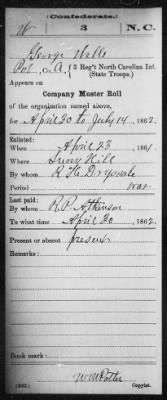 (Confederate.)
W 3 N.C.
George Wells
Pvt, Co. A, 3 Reg't North Carolina Inf.
(State Troops.)
Appears on
Company Muster Roll
of the organization named above,
for April 30 to July 14, 1862.
Enlisted:
When April 23, 186
Where Snow Hill
By whom R. H. Drysdale
Period war
Last paid:
By whom R. P. Atkinson
To what time April 30, 1862.
Present or absent present
Remarks:
(642)
Copyist.